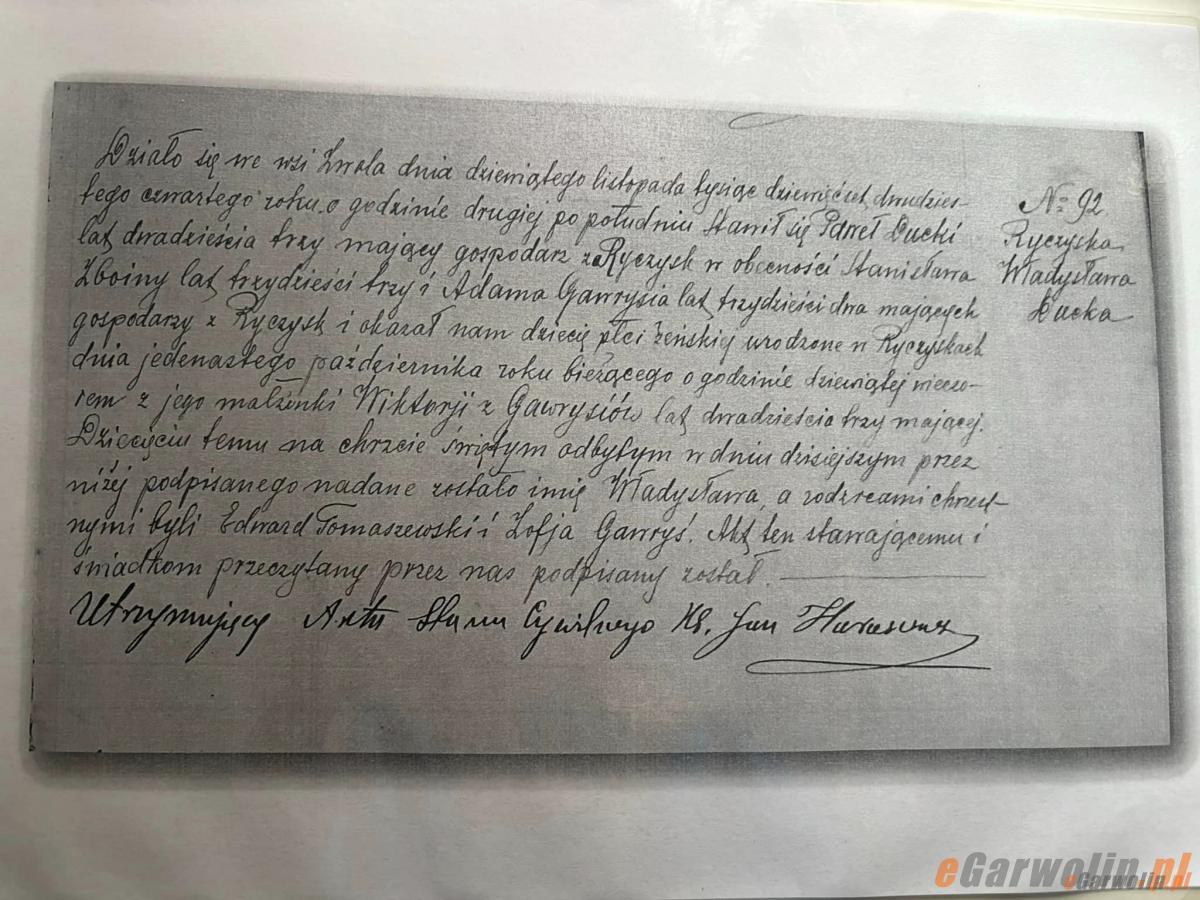 Działo się we wsi Zwola dnia dziewiątego listopada tysiąc dziewięćset dwudzies-
tego czwartego roku, o godzinie drugiej po południu Stawił się Paweł Ducki
lat dwadzieścia trzy mający gospodarz z Ryczysk w obecności Stanisława
Zboiny lat trzydzieści trzy i Adama Gawrysia lat trzydzieści dwa mających
gospodarzy z Ryczysk i okazał nam dziecię płci żeńskiej urodzone w Ryczyskach
dnia jedenastego października roku bieżącego o godzinie dziewiątej wieczo-
rem z jego małżonki Wiktorji z Gawrysiów lat dwadzieścia trzy mającej.
Dziecięciu temu na chrzcie świętym odbytym w dniu dzisiejszym przez
niżej podpisanego nadane zostało imię Władysława, a rodzicami chrzest-
nymi byli Edward Tomaszewski i Zofja Gawryś. Akt ten stawającemu i
świadkom przeczytany przez nas podpisany został.
Utrzymujący Akta Stanu Cywilnego Ks. Jan
No 92
Ryczyska
Władysława
Ducka
eGarwolin.pl
eGarwolin.pl